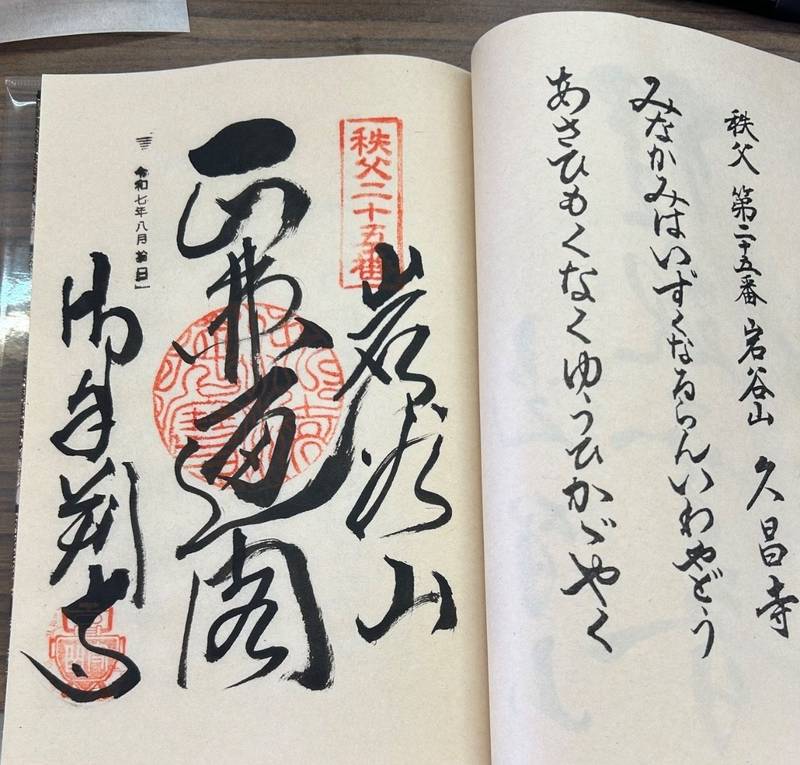 秩父 第二十五番 岩谷山 久昌寺
みなかみはいずくなるらんいわやどう
あさひもくなくゆうひかゞやく
秩父二十五番
岩谷山
閣
令和七年八月 日
御手判寺